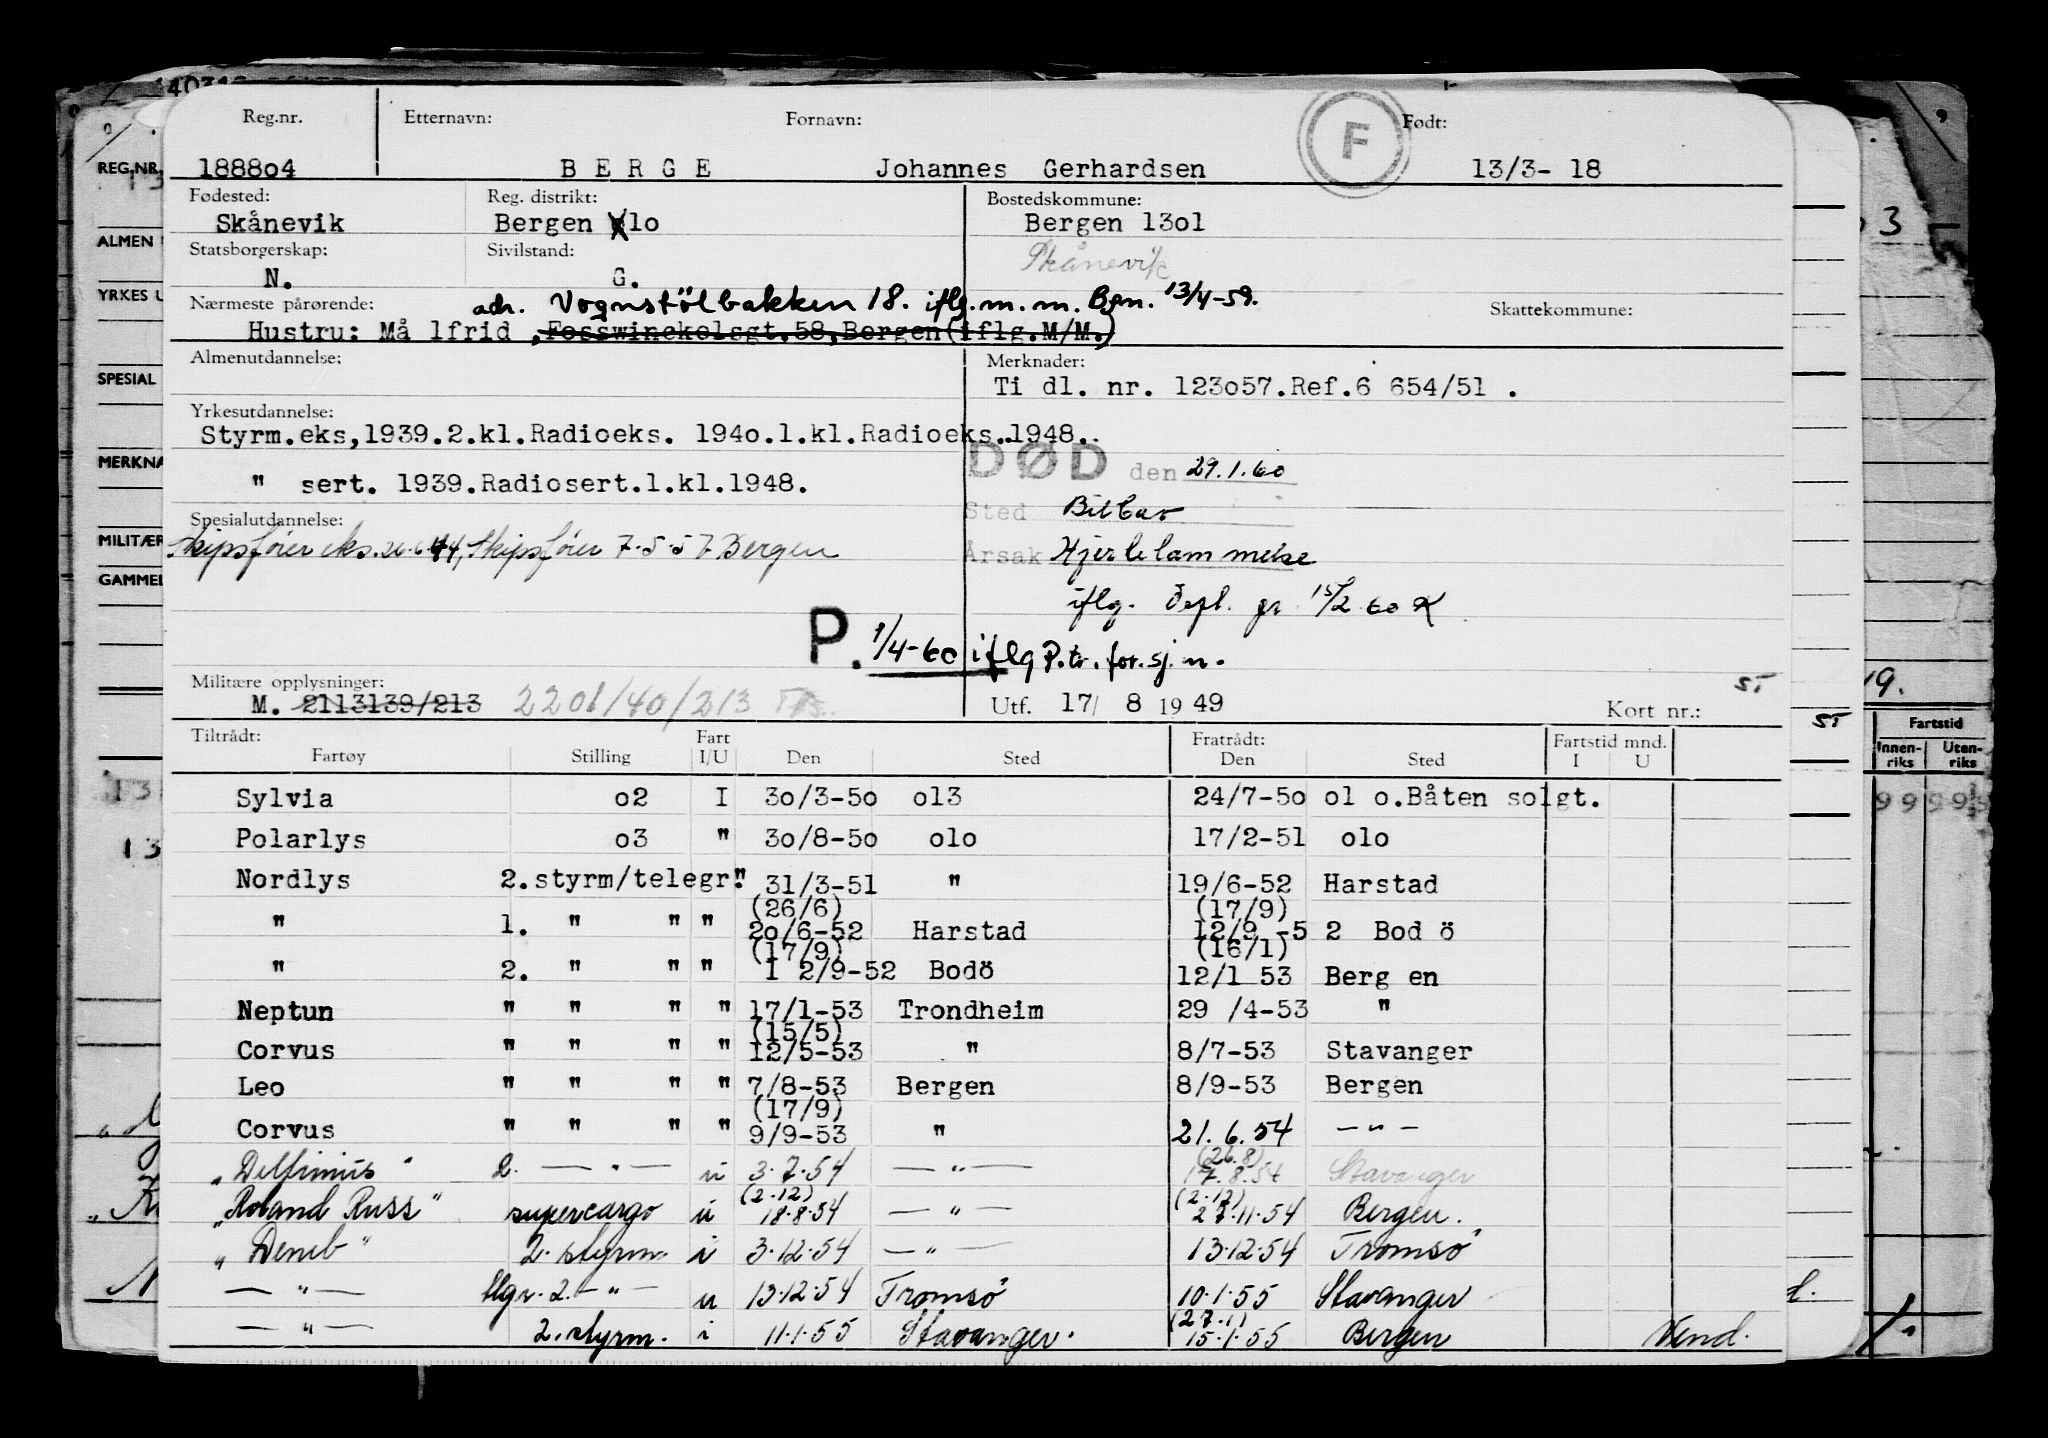 Reg.nr. Etternavn: Fornavn: F Født:
REG.NR. 188804 B E R G E Johannes Gerhardsen 13/3- 18
Fødested: Reg. distrikt: Bostedskommune:
Skånevik Bergen lo Bergen 13o1
Statsborgerskap: Sivilstand: Skånevik
N. G.
Nærmeste pårørende: adr. Vognstölbakken 18. iflg. m.m. Bgn. 13/4-59. Skattekommune:
Hustru: Må lfrid ,Fosswinckelsgt.58,Bergen(iflg.M/M.)
Almenutdannelse: Merknader:
SPESIAL Ti dl. nr. 123o57.Ref.6 654/51 .
Yrkesutdannelse:
Styrm.eks,1939.2.kl.Radioeks. 194o.1.kl.Radioeks..1948..
DØD den 29.1.60
" sert. 1939.Radiosert.1.kl.1948.
Sted Bilbao
Spesialutdannelse:
Skipsfører eks. 26.6.44, Skipsfører 7.5.57 Bergen
Årsak Hjertelammelse
iflg. 15/2 60
P. 1/4-60 iflg P.tr. for. sj.m.
Militære opplysninger: ST
M. 2113139/213 2201/40/213 Utf. 17/ 8 19 49 Kort nr.:
Tiltrådt: Fart Fratrådt: Fartstid mnd.
Fartøy Stilling I/U Den Sted Den Sted I U
Sylvia o2 I 3o/3-5o o13 24/7-5o o1 o.Båten solgt.
Polarlys o3 " 3o/8-5o o1o 17/2-51 o1o
Nordlys 2.styrm/telegr." 31/3-51 " 19/6-52 Harstad
(26/6) (17/9)
" 1. " " " 2o/6-52 Harstad 12/9 -5 2 Bod ö
(17/9) (16/1)
" 2. " " " 1 2/9-52 Bodö 12/1 53 Berg en
Neptun " " " " 17/1-53 Trondheim 29 /4-53 "
(15/5)
Corvus " " " " 12/5-53 " 8/7-53 Stavanger
Leo " " " " 7/8-53 Bergen 8/9-53 Bergen
(17/9)
Corvus " " " " 9/9-53 " 21.6.54 — " —
(26.8)
"Delfinus" 2. — " — u 3.7.54 — " — 17.8.54 Stavanger
(2.12) (2.12)
"Roland Russ" supercargo u 18.8.54 — " — 27.11.54 Bergen.
"Deneb" 2. styrm. i 3.12.54 — " — 13.12.54 Tromsö
— " — tlgr. 2. — " — u 13.12.54 Tromsö 10.1.55 Stavanger
(27.1)
— " — 2. styrm. i 11.1.55 Stavanger. 15.1.55 Bergen Vend.
ALMEN
YRKES U
MERKNA
MILITÆR
GAMMEL
3
19.
ST
Fartstid
Innen-riks Uten-riks
13